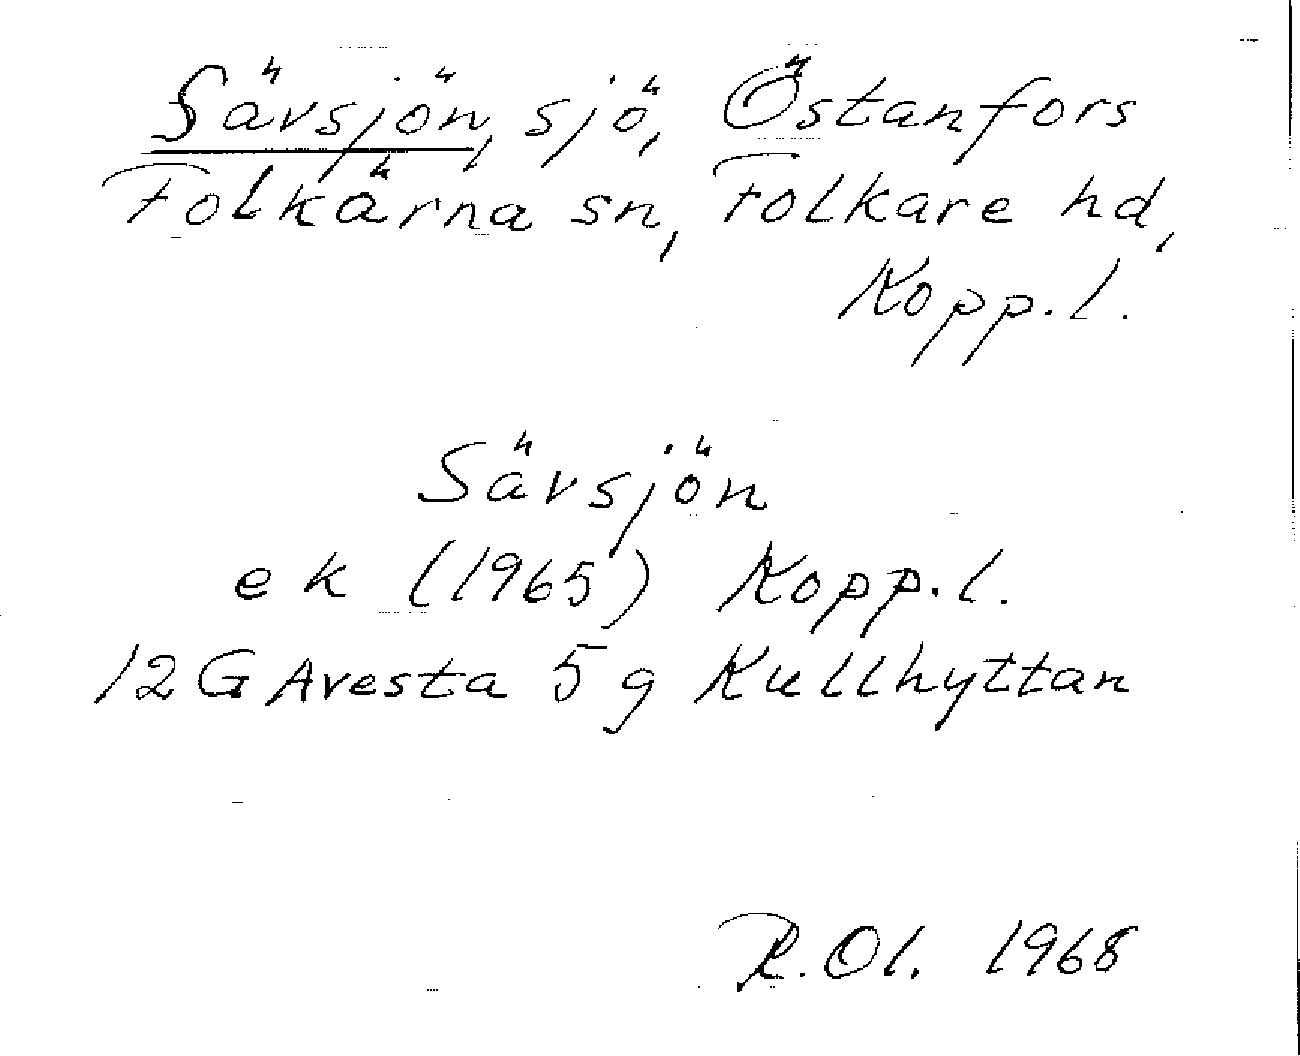 Sävsjön, sjö, Östanfors
Folkärna sn, Folkare hd,
Kopp.l.
Sävsjön
ek (1965) Kopp.l.
12G Avesta 5g Kullhyttan
R.Ol. 1968